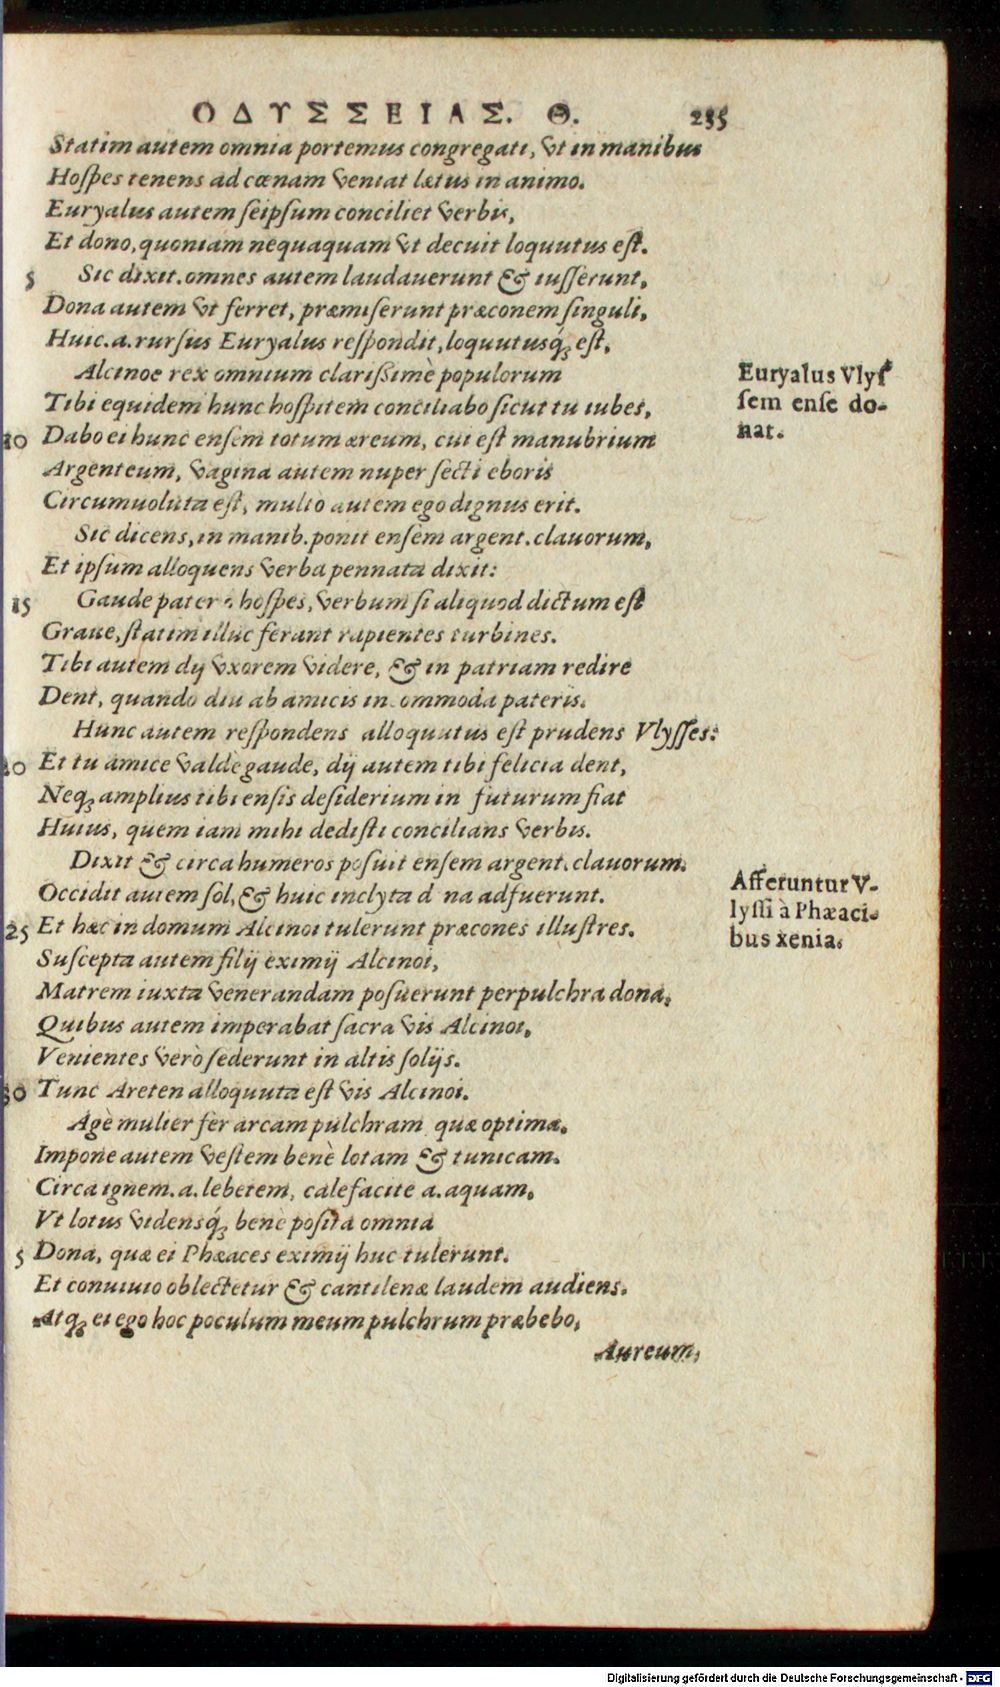 ΟΔΥΣΣΕΙΑΣ. Θ. 235
Statim autem omnia portemus congregati, vt in manibus
Hoſpes tenens ad cœnam veniat lætus in animo.
Euryalus autem ſeipſum conciliet verbis,
Et dono, quoniam nequaquam vt decuit loquutus eſt.
5 Sic dixit. omnes autem laudauerunt & iuſſerunt,
Dona autem vt ferret, præmiſerunt præconem ſinguli,
Huic .a. rurſus Euryalus reſpondit, loquutusq́; eſt,
Alcinoe rex omnium clariſſimè populorum
Tibi equidem hunc hoſpitem conciliabo ſicut tu iubes,
10 Dabo ei hunc enſem totum æreum, cui eſt manubrium
Argenteum, vagina autem nuper ſecti eboris
Circumuoluta eſt, multo autem ego dignus erit.
Sic dicens, in manib. ponit enſem argent. clauorum,
Et ipſum alloquens verba pennata dixit:
15 Gaude pater hoſpes, verbum ſi aliquod dictum eſt
Graue, ſtatim illuc ferant rapientes turbines.
Tibi autem dij vxorem videre, & in patriam redire
Dent, quando diu ab amicis in ommoda pateris.
Hunc autem reſpondens alloquutus eſt prudens Vlyſſes:
20 Et tu amice valdè gaude, dij autem tibi felicia dent,
Neq; amplius tibi enſis deſiderium in futurum fiat
Huius, quem iam mihi dediſti concilians verbis.
Dixit & circa humeros poſuit enſem argent. clauorum.
Occidit autem ſol, & huic inclyta d na adfuerunt.
25 Et hæc in domum Alcinoi tulerunt præcones illuſtres.
Suſcepta autem filij eximij Alcinoi,
Matrem iuxta venerandam poſuerunt perpulchra dona,
Quibus autem imperabat ſacra vis Alcinoi,
Venientes verò ſederunt in altis ſolijs.
30 Tunc Areten alloquuta eſt vis Alcinoi.
Agè mulier fer arcam pulchram quæ optima.
Impone autem veſtem benè lotam & tunicam.
Circa ignem .a. lebetem, calefacite a. aquam,
Vt lotus vidensq́; benè poſita omnia
5 Dona, quæ ei Phæaces eximij huc tulerunt.
Et conuiuio oblectetur & cantilenæ laudem audiens.
Atq; ei ego hoc poculum meum pulchrum præbebo,
Aureum,
Euryalus Vlyſ
ſem enſe do-
nat.
Afferuntur V-
lyſſi à Phæaci-
bus xenia.
Digitalisierung gefördert durch die Deutsche Forschungsgemeinschaft - DFG